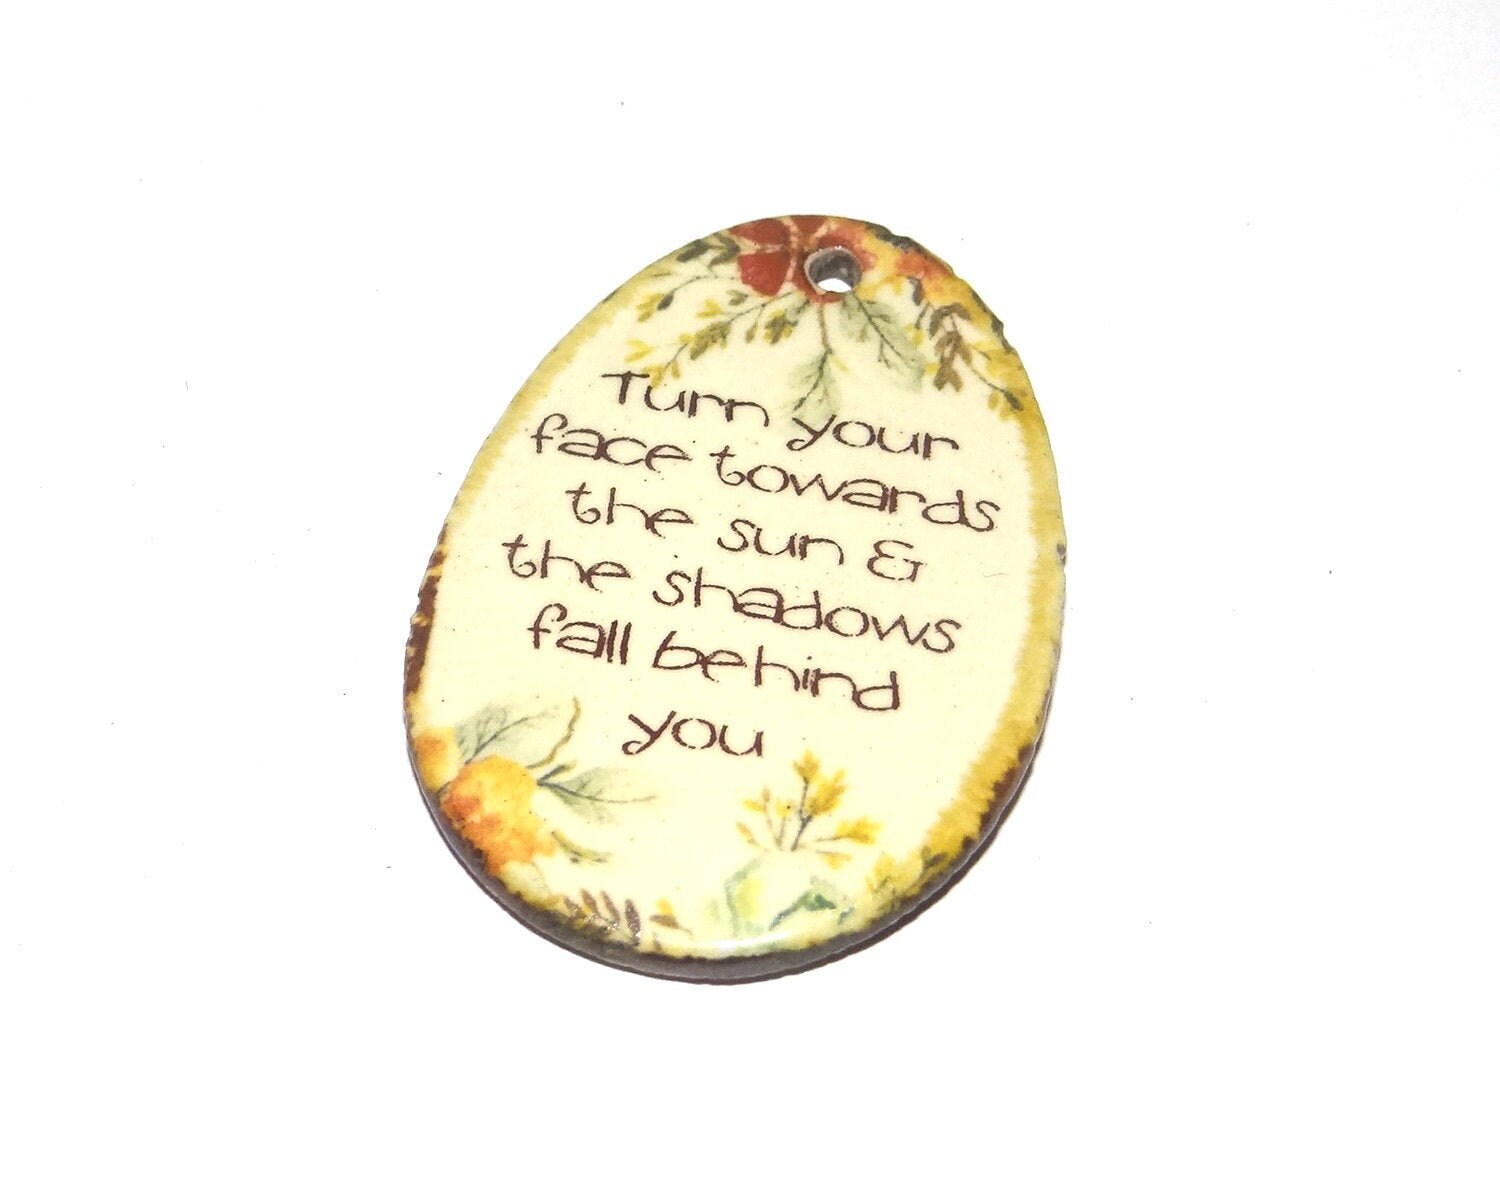 Turn your
face towards
the sun &
the shadows
fall behind
you